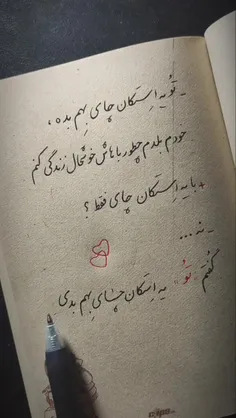 _ تو یه استکان چای بهم بده ،
خودم بلدم چطور باهاش خوشحال زندگی کنم
+ با یه استکان چای فقط ؟
_ نه ...
گفتم " تو " یه استکان چای بهم بدی